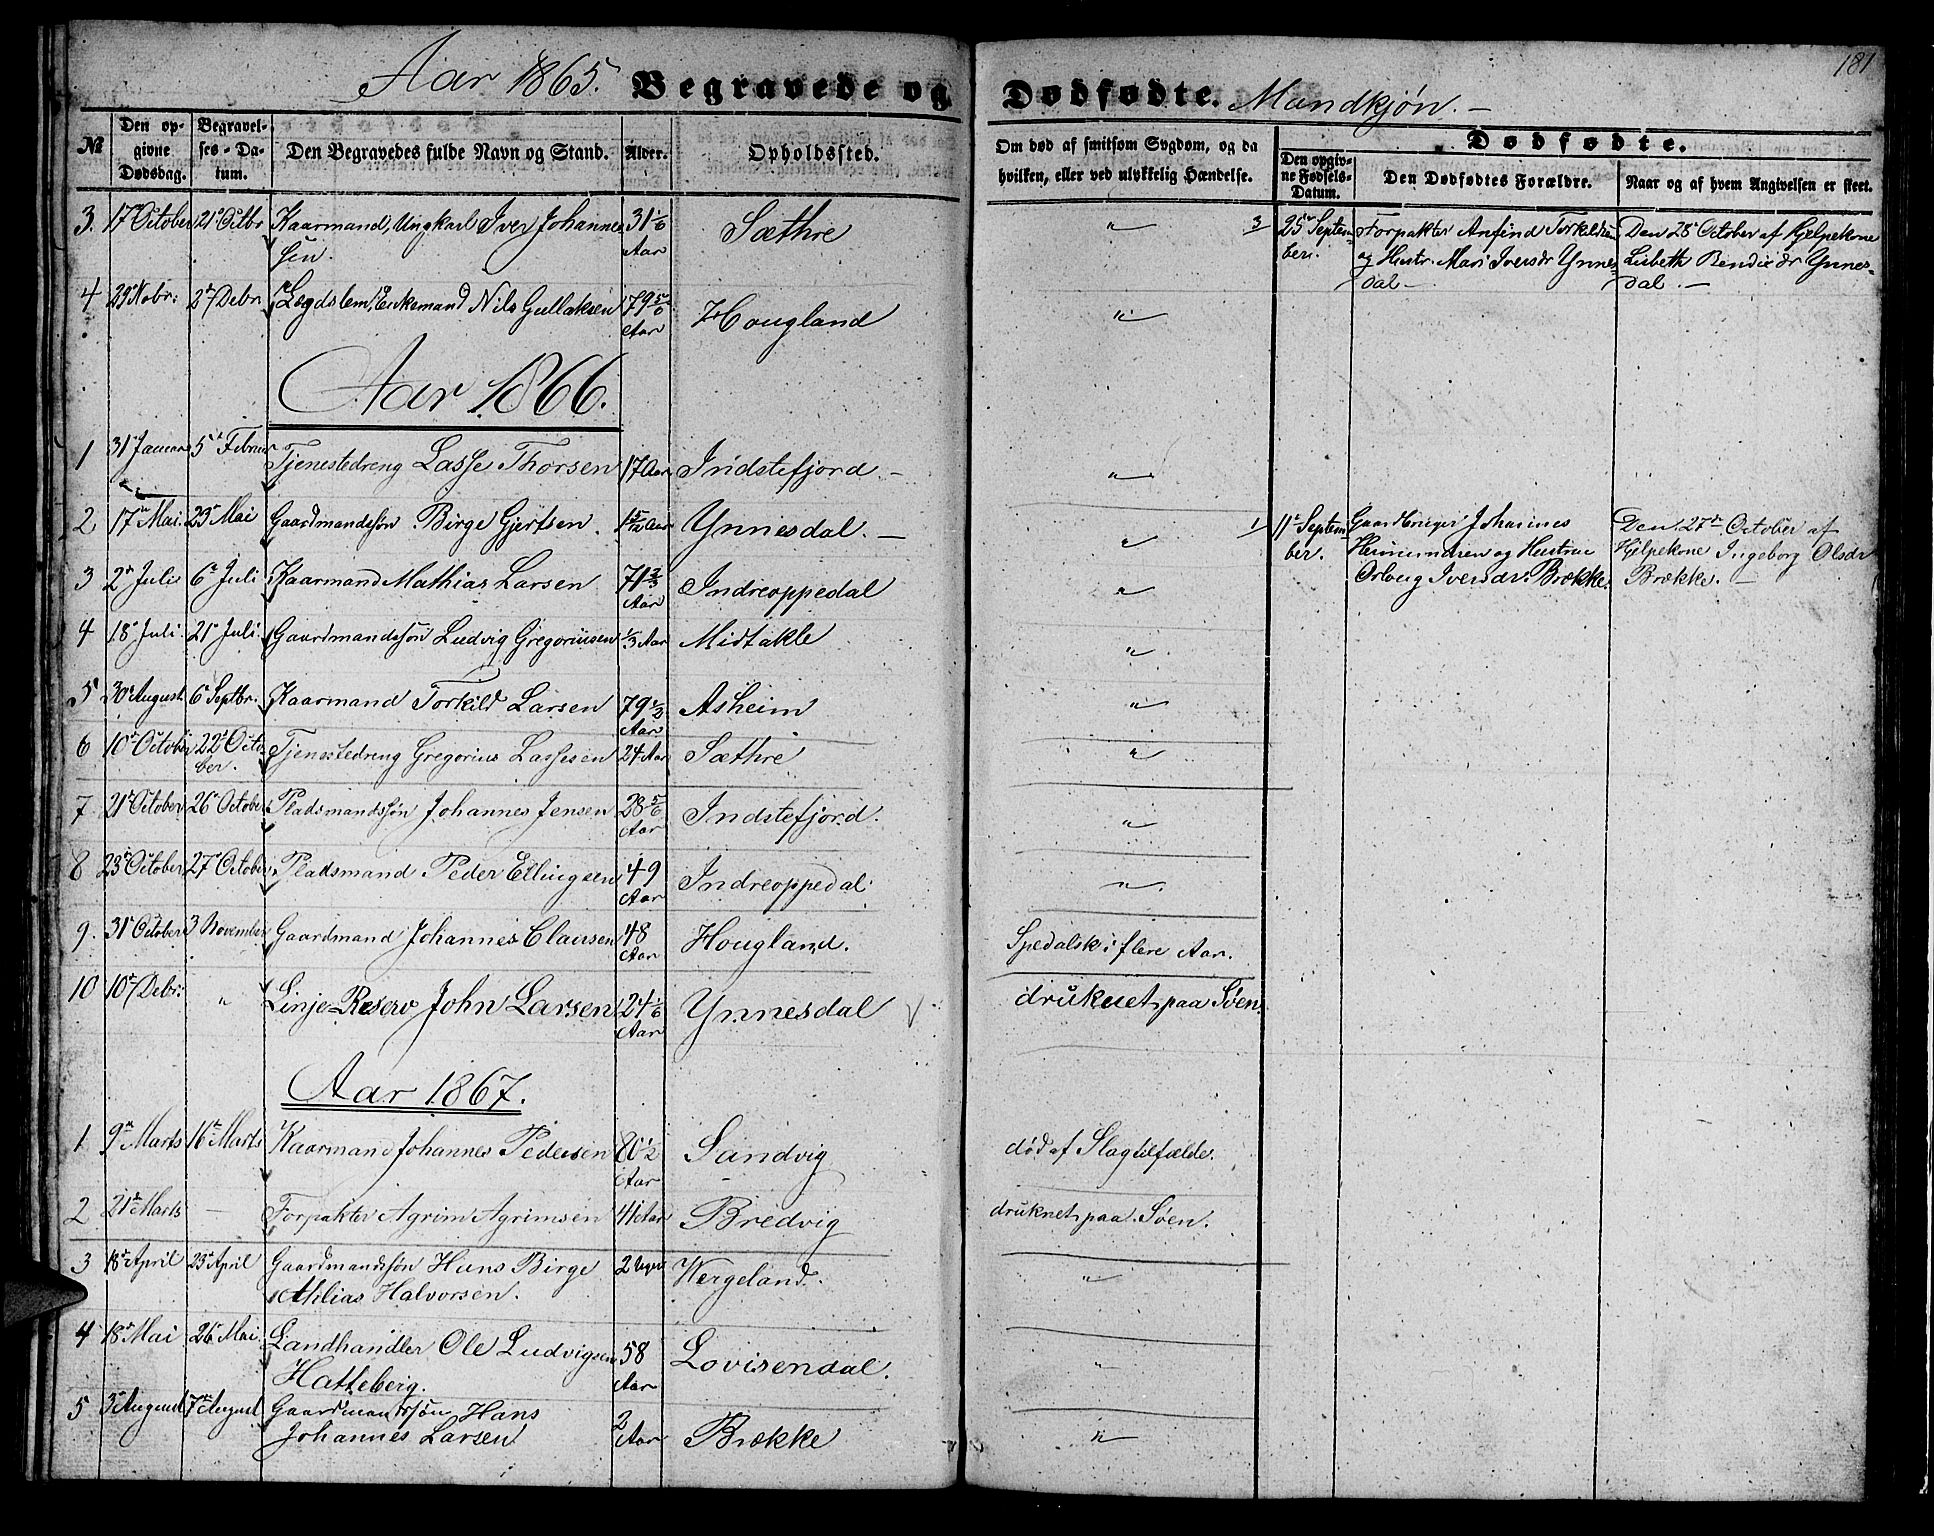 Aar 1865. Begravede og Dødfødte. Mandkjøn. 181
№ Den opgivne Dødsdag. Begravelses-Datum. Den Begravedes fulde Navn og Stand. Alder. Opholdssted. Om død af smitsom Sygdom, og da hvilken, eller ved ulykkelig Hændelse. Dødfødte. Den opgivne Fødsels-Datum. Den Dødfødtes Forældre. Naar og af hvem Angivelsen er skeet.
3. 17 October 21 Octbr Kaarmand, Ungkarl Iver Johannes- 31 1/6 Sæthre " 3 25 Septem- Forpakter Anfind Torkildsen Den 28 October af Hjelpekone
sen. Aar ber. og Hustr. Mari Iversdr Ynnes- Lisbeth Bendixdr Ynnes-
dal — dal. —
4 29 Nobr: 2 Debr Lægdslem, Enkemand Nils Gullaksen 79 5/6 Aar Hougland "
Aar 1866.
1 31 Januar 5 Februar Tjenestedreng Lasse Thorsen 17 Aar Indstefjord. — "
2 17 Mai. 23 Mai Gaardmandssøn Birge Gjertsen. 1 5/12 Aar Ynnesdal. — " 1 11 Septem- Gaardbruger Johannes Den 27de October af
ber. og Hustrue Hjelpekone Ingeborg Olsdr
Iversdr: Brække. Brække. —
3 2 Juli 6 Juli Kaarmand Mathias Larsen 71 2/3 Aar Indreoppedal "
4 18 Juli. 21 Juli. Gaardmandssøn Ludvig Gregoriusen 1/3 Aar Midtakle "
5 30 August 6 Septbr. Kaarmand Torkild Larsen 79 1/2 Aar Asheim "
6 10 October 22 October. Tjenestedreng Gregorius Lassesen 24 Aar Sæthre "
7 21 October 26 October Pladsmandssøn Johannes Jensen 28 5/6 Aar Indstefjord. "
8 23 October 27 October Pladsmand Peder Ellingsen 49 Aar Indreoppedal. "
9. 31 October 3 November Gaardmand Johannes Clausen 48 Aar Hougland. Spedalsk i flere Aar.
10 10 Debr: " Linje-Reserv John Larsen 24 1/6 Aar Ynnesdal druknet paa Søen.
Aar 1867.
1 9 Marts 16 Marts Kaarmand Johannes Pedersen 80 1/2 Aar Sandvig død af Slagtilfælde.
2 21 Marts — Forpakter Agrim Agrimsen 41 Aar Bredvig druknet paa Søen.
3 18 April 23 April Gaardmandssøn Hans Birge 2 Uger Wergeland. "
Athlias Halvorsen.
4 18 Mai 26 Mai. Landhandler Ole Ludvigsen 58 Aar Lovisendal. "
Hatteberg.
5 3 August 7 August Gaardmandssøn Hans 2 Aar Brække "
Johannes Larsen